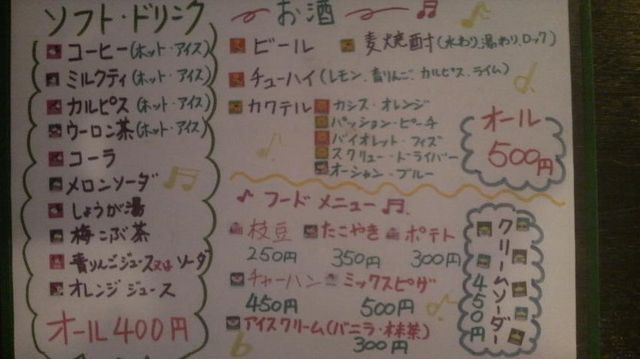 ソフト・ドリンク
コーヒー(ホット・アイス)
ミルクティ(ホット・アイス)
カルピス(ホット・アイス)
ウーロン茶(ホット・アイス)
コーラ
メロンソーダ
しょうが湯
梅こぶ茶
青りんごジュース又はソーダ
オレンジジュース
オール400円
お酒
ビール
麦焼酎(水わり、湯わり、ロック)
チューハイ(レモン、青りんご、カルピス、ライム)
カクテル
カシス・オレンジ
パッション・ピーチ
バイオレット・フィズ
スクリュー・ドライバー
オーシャン・ブルー
オール
500円
フードメニュー
枝豆 たこやき ポテト
250円 350円 300円
チャーハン ミックスピザ
450円 500円
アイスクリーム(バニラ・抹茶)
300円
クリームソーダー
450円